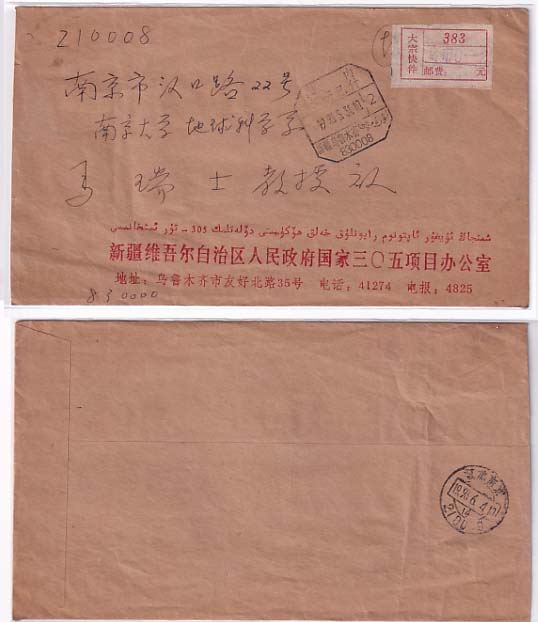 210008
大宗快件
383
邮费: 元
南京市汉口路22号
南京大学地球科学系
马瑞士教授收
830008
شىنجاڭ ئۇيغۇر ئاپتونوم رايونلۇق خەلق ھۆكۈمىتى دۆلەتلىك 305 - تۈر ئىشخانىسى
新疆维吾尔自治区人民政府国家三〇五项目办公室
地址：乌鲁木齐市友好北路35号 电话：41274 电报：4825
830000